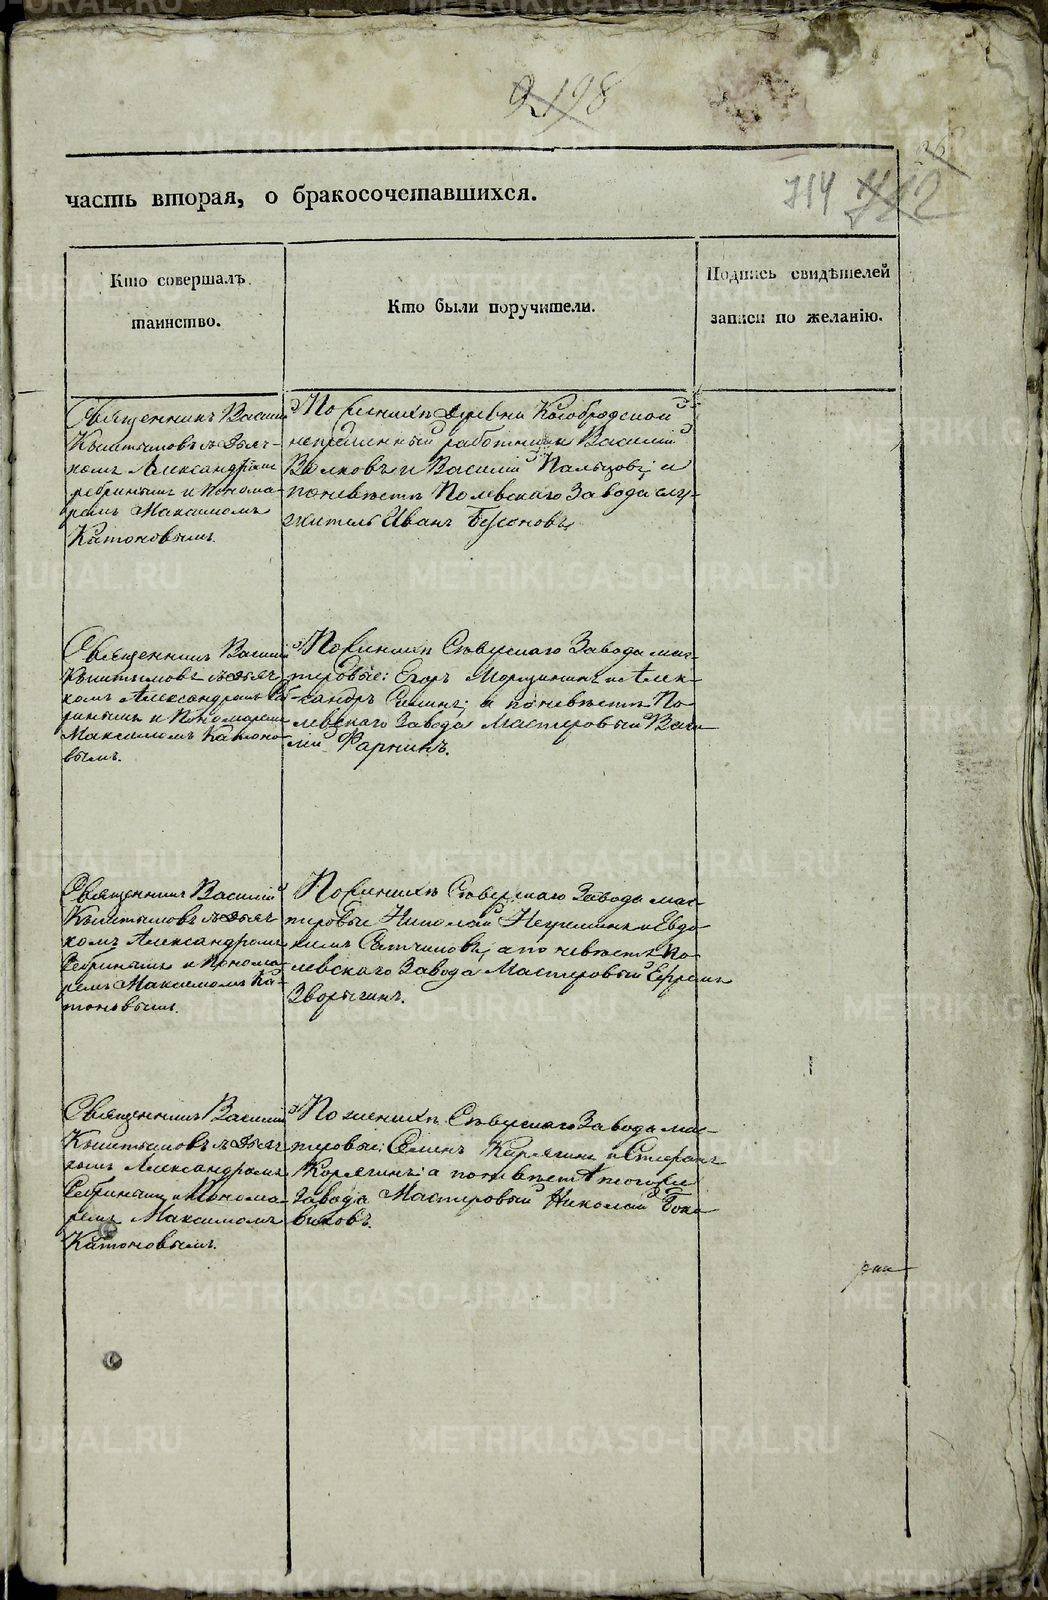 198
714
часть вторая, о бракосочетавшихся.
Кто совершалъ
таинство.
Кто были поручители.
Подпись свидѣтелей
записи по желанію.
Священникъ Василій
Кыштымовъ съ Дьяч-
комъ Александромъ
ребринымъ и Понома-
ремъ Максимомъ
Катоновымъ.
По женихѣ деревни Кособродской
непремѣнный работники Василій
Волковъ и Василій Пальцовъ; и
по невѣстѣ Полевскаго Завода слу-
житель Иванъ
Священникъ Василій
Кыштымовъ съ Дьяч-
комъ Александромъ Се-
ринымъ и Пономаремъ
Максимомъ Катоно-
вымъ.
По женихѣ Сѣверскаго Завода мас-
теровые: Егоръ и Алек-
сандръ а по невѣстѣ По-
левскаго Завода Мастеровый Васи-
лій
Священникъ Василій
Кыштымовъ съ Дьяч-
комъ Александромъ
Себринымъ и Понома-
ремъ Максимомъ Ка-
тоновымъ.
По женихѣ Сѣверскаго Завода мас-
теровые Николай и Евдо-
кимъ а по невѣстѣ По-
левскаго Завода Мастеровый Ефремъ
Зворыгинъ.
Священникъ Василій
Кыштымовъ съ Дьяч-
комъ Александромъ
Себринымъ и Понома-
ремъ Максимомъ
Катоновымъ.
По женихѣ Сѣверскаго Завода мас-
теровые: Семенъ Карлягинъ и Стефанъ
Корлягинъ; а по невѣстѣ тогоже
Завода Мастеровый Николай
METRIKI.GASO-URAL.RU